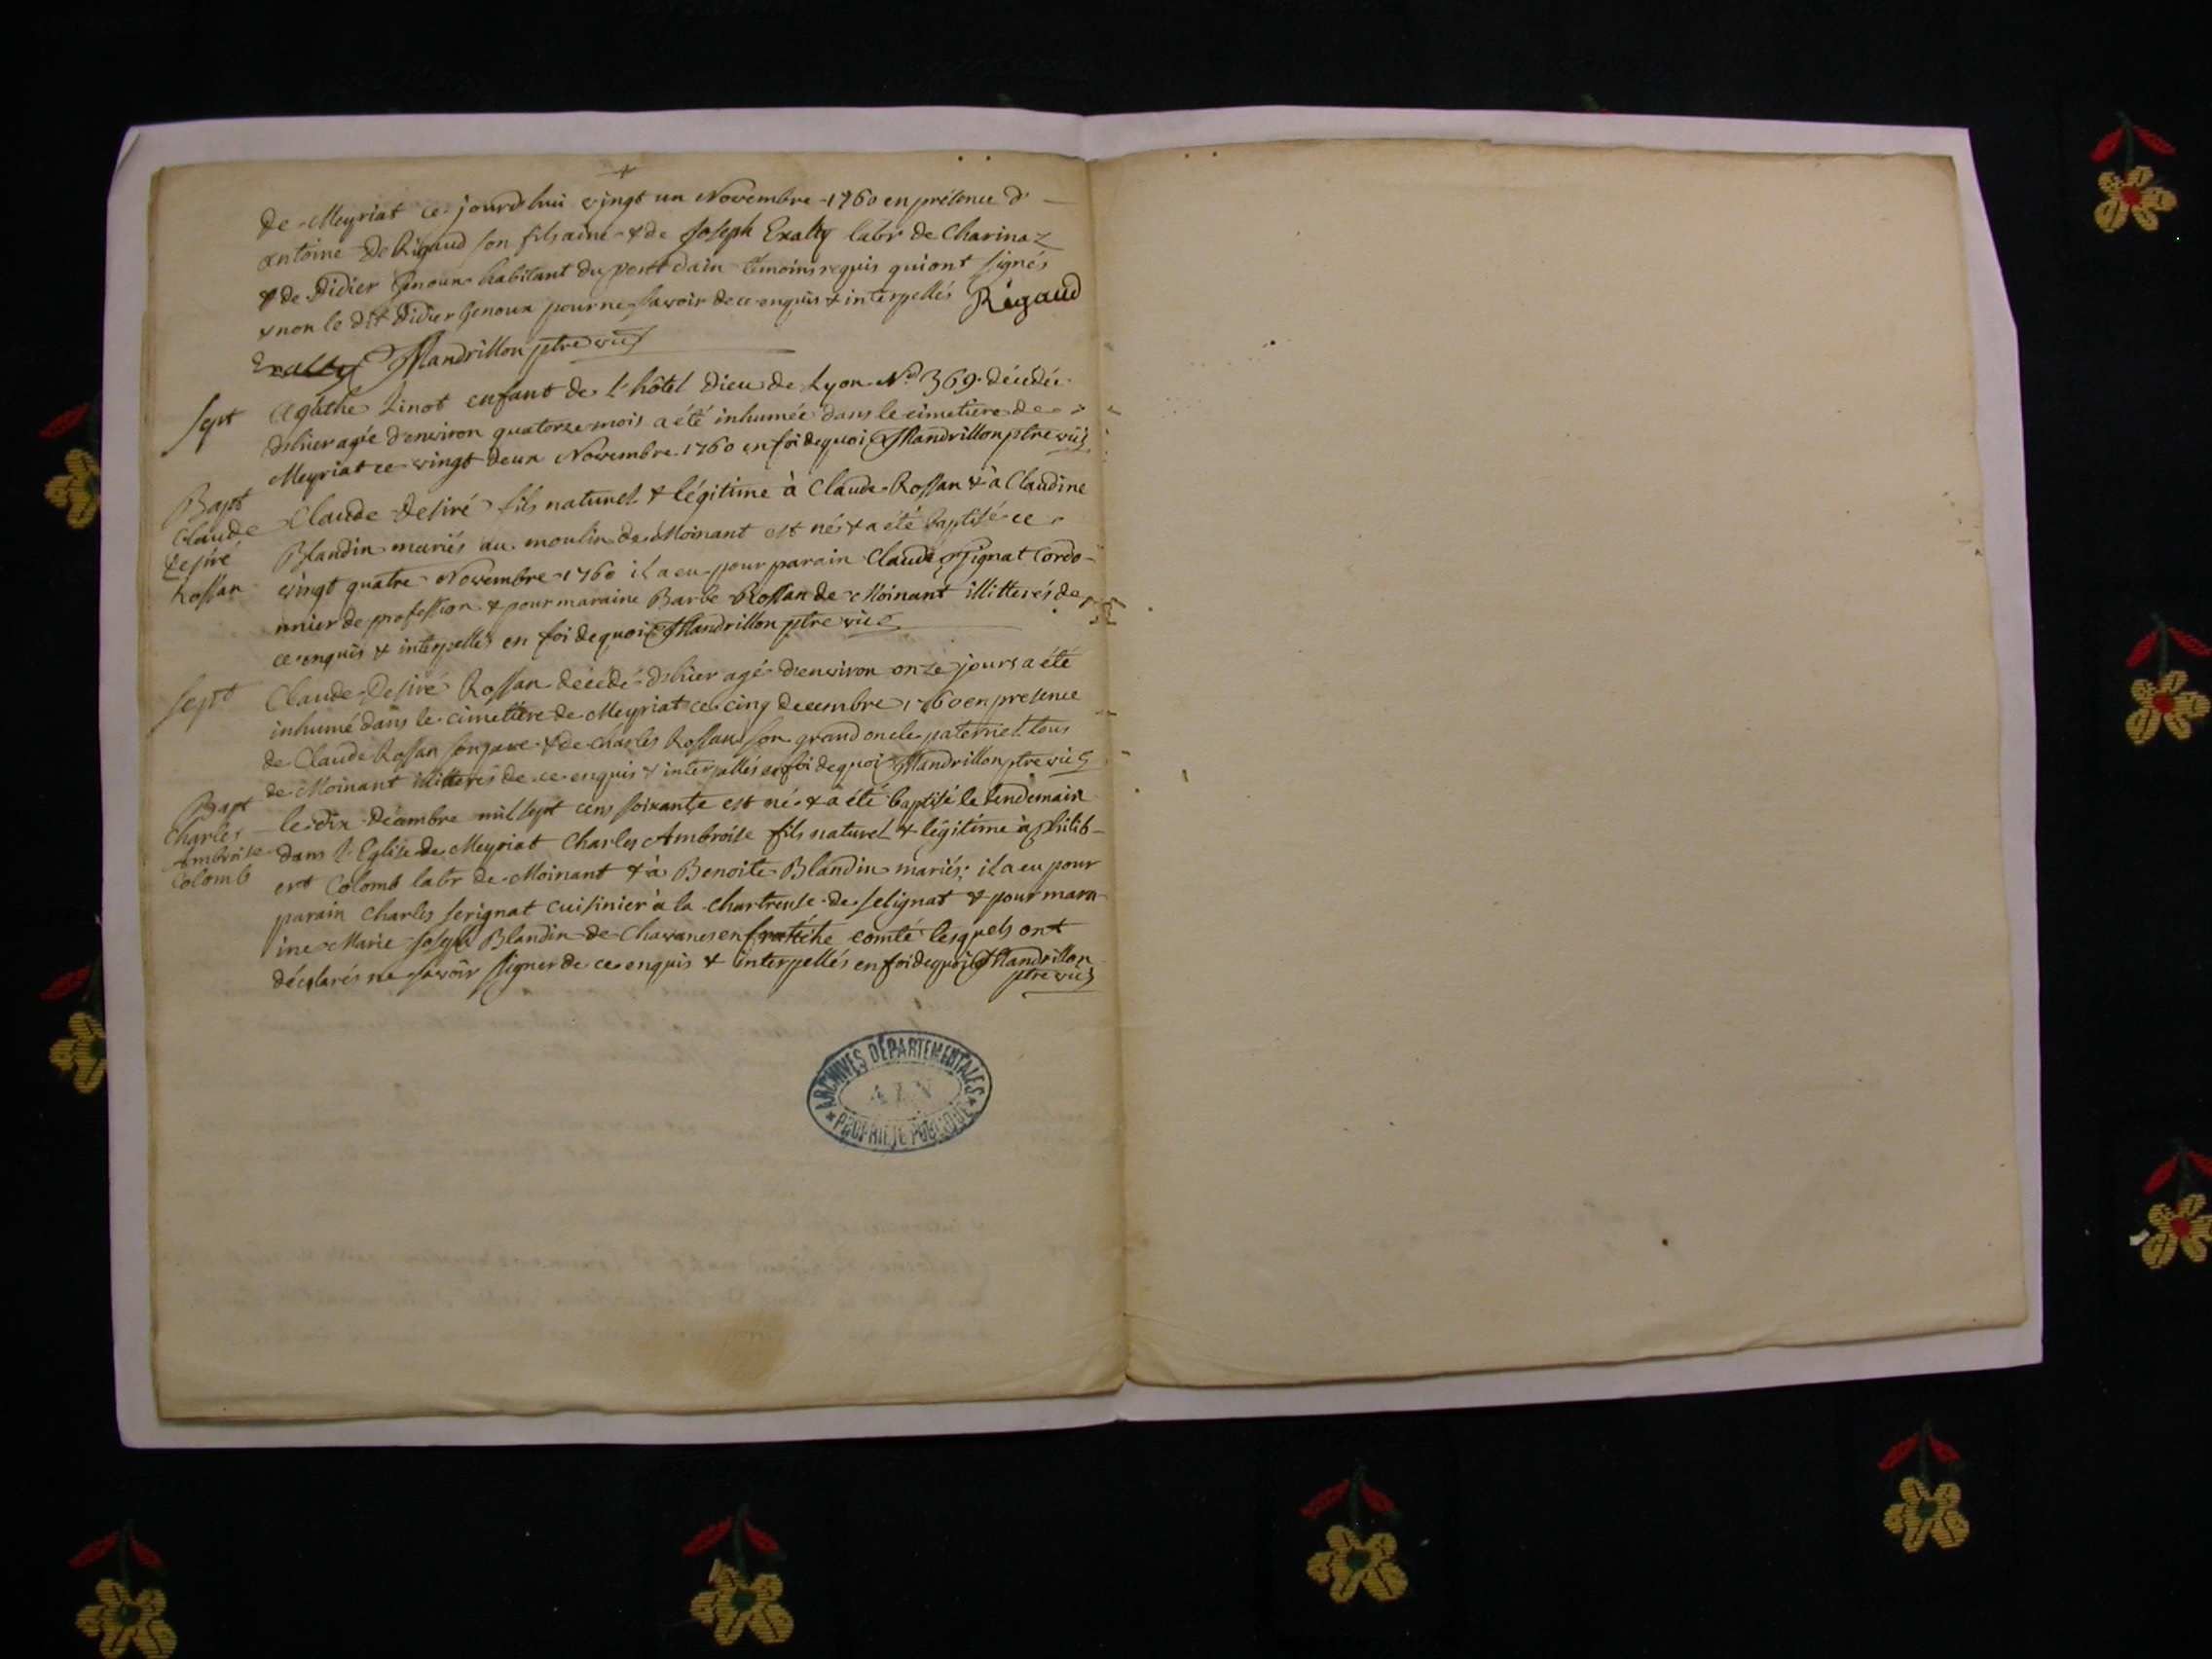 de Meyriat ce jourdhui vingt un Novembre 1760 en présence d'
antoine De Rigaud son fils ainé & de Joseph Exalty labr de Charinaz
& de Didier Genoux habitant du pont dain témoins requis qui ont signés
& non le dit Didier Genoux pour ne savoir de ce enquis & interpellés Rigaud
Exalty Mandrillon ptre vic
Sept
Agathe Linot enfant de l'hôtel Dieu de Lyon No 369 décédée
d'hier agée d'environ quatorze mois a été inhumée dans le cimetiere de
Meyriat ce vingt deux Novembre 1760 en foi dequoi Mandrillon ptre vic
Bapt
Claude
desiré
Rossan
Claude desiré fils naturel & légitime à Claude Rossan & à Claudine
Blandin mariés au moulin de Moinant est né & a été baptisé ce
vingt quatre Novembre 1760 il a eu pour parain Claude Cordo-
nnier de profession & pour maraine Barbe Rossan de Moinant illitterés de
ce enquis & interpellés en foi dequoi Mandrillon ptre vic
Sept
Claude Desiré Rossan décédé d'hier agé d'environ onze jours a été
inhumé dans le cimetière de Meyriat ce cinq decembre 1760 en presence
de Claude Rossan son pere & de Charles Rossan son grand oncle paternel tous
de Moinant illitterés de ce enquis & interpellés en foi dequoi Mandrillon ptre vic
Bapt
Charles
Ambroise
Colomb
le dix décembre mil sept cens soixante est né & a été baptisé le lendemain
dans l'Eglise de Meyriat Charles Ambroise fils naturel & légitime à philib-
ert Colomb labr de Moinant & à Benoite Blandin mariés; il a eu pour
parain Charles serignat cuisinier à la chartreuse de selignat & pour mara-
ine Marie Joseph Blandin de Chavanes en comté lesquels ont
déclarés ne savoir signer de ce enquis & interpellés en foi dequoi Mandrillon
ptre vic
ARCHIVES DÉPARTEMENTALES
AIN
PROPRIÉTÉ PUBLIQUE